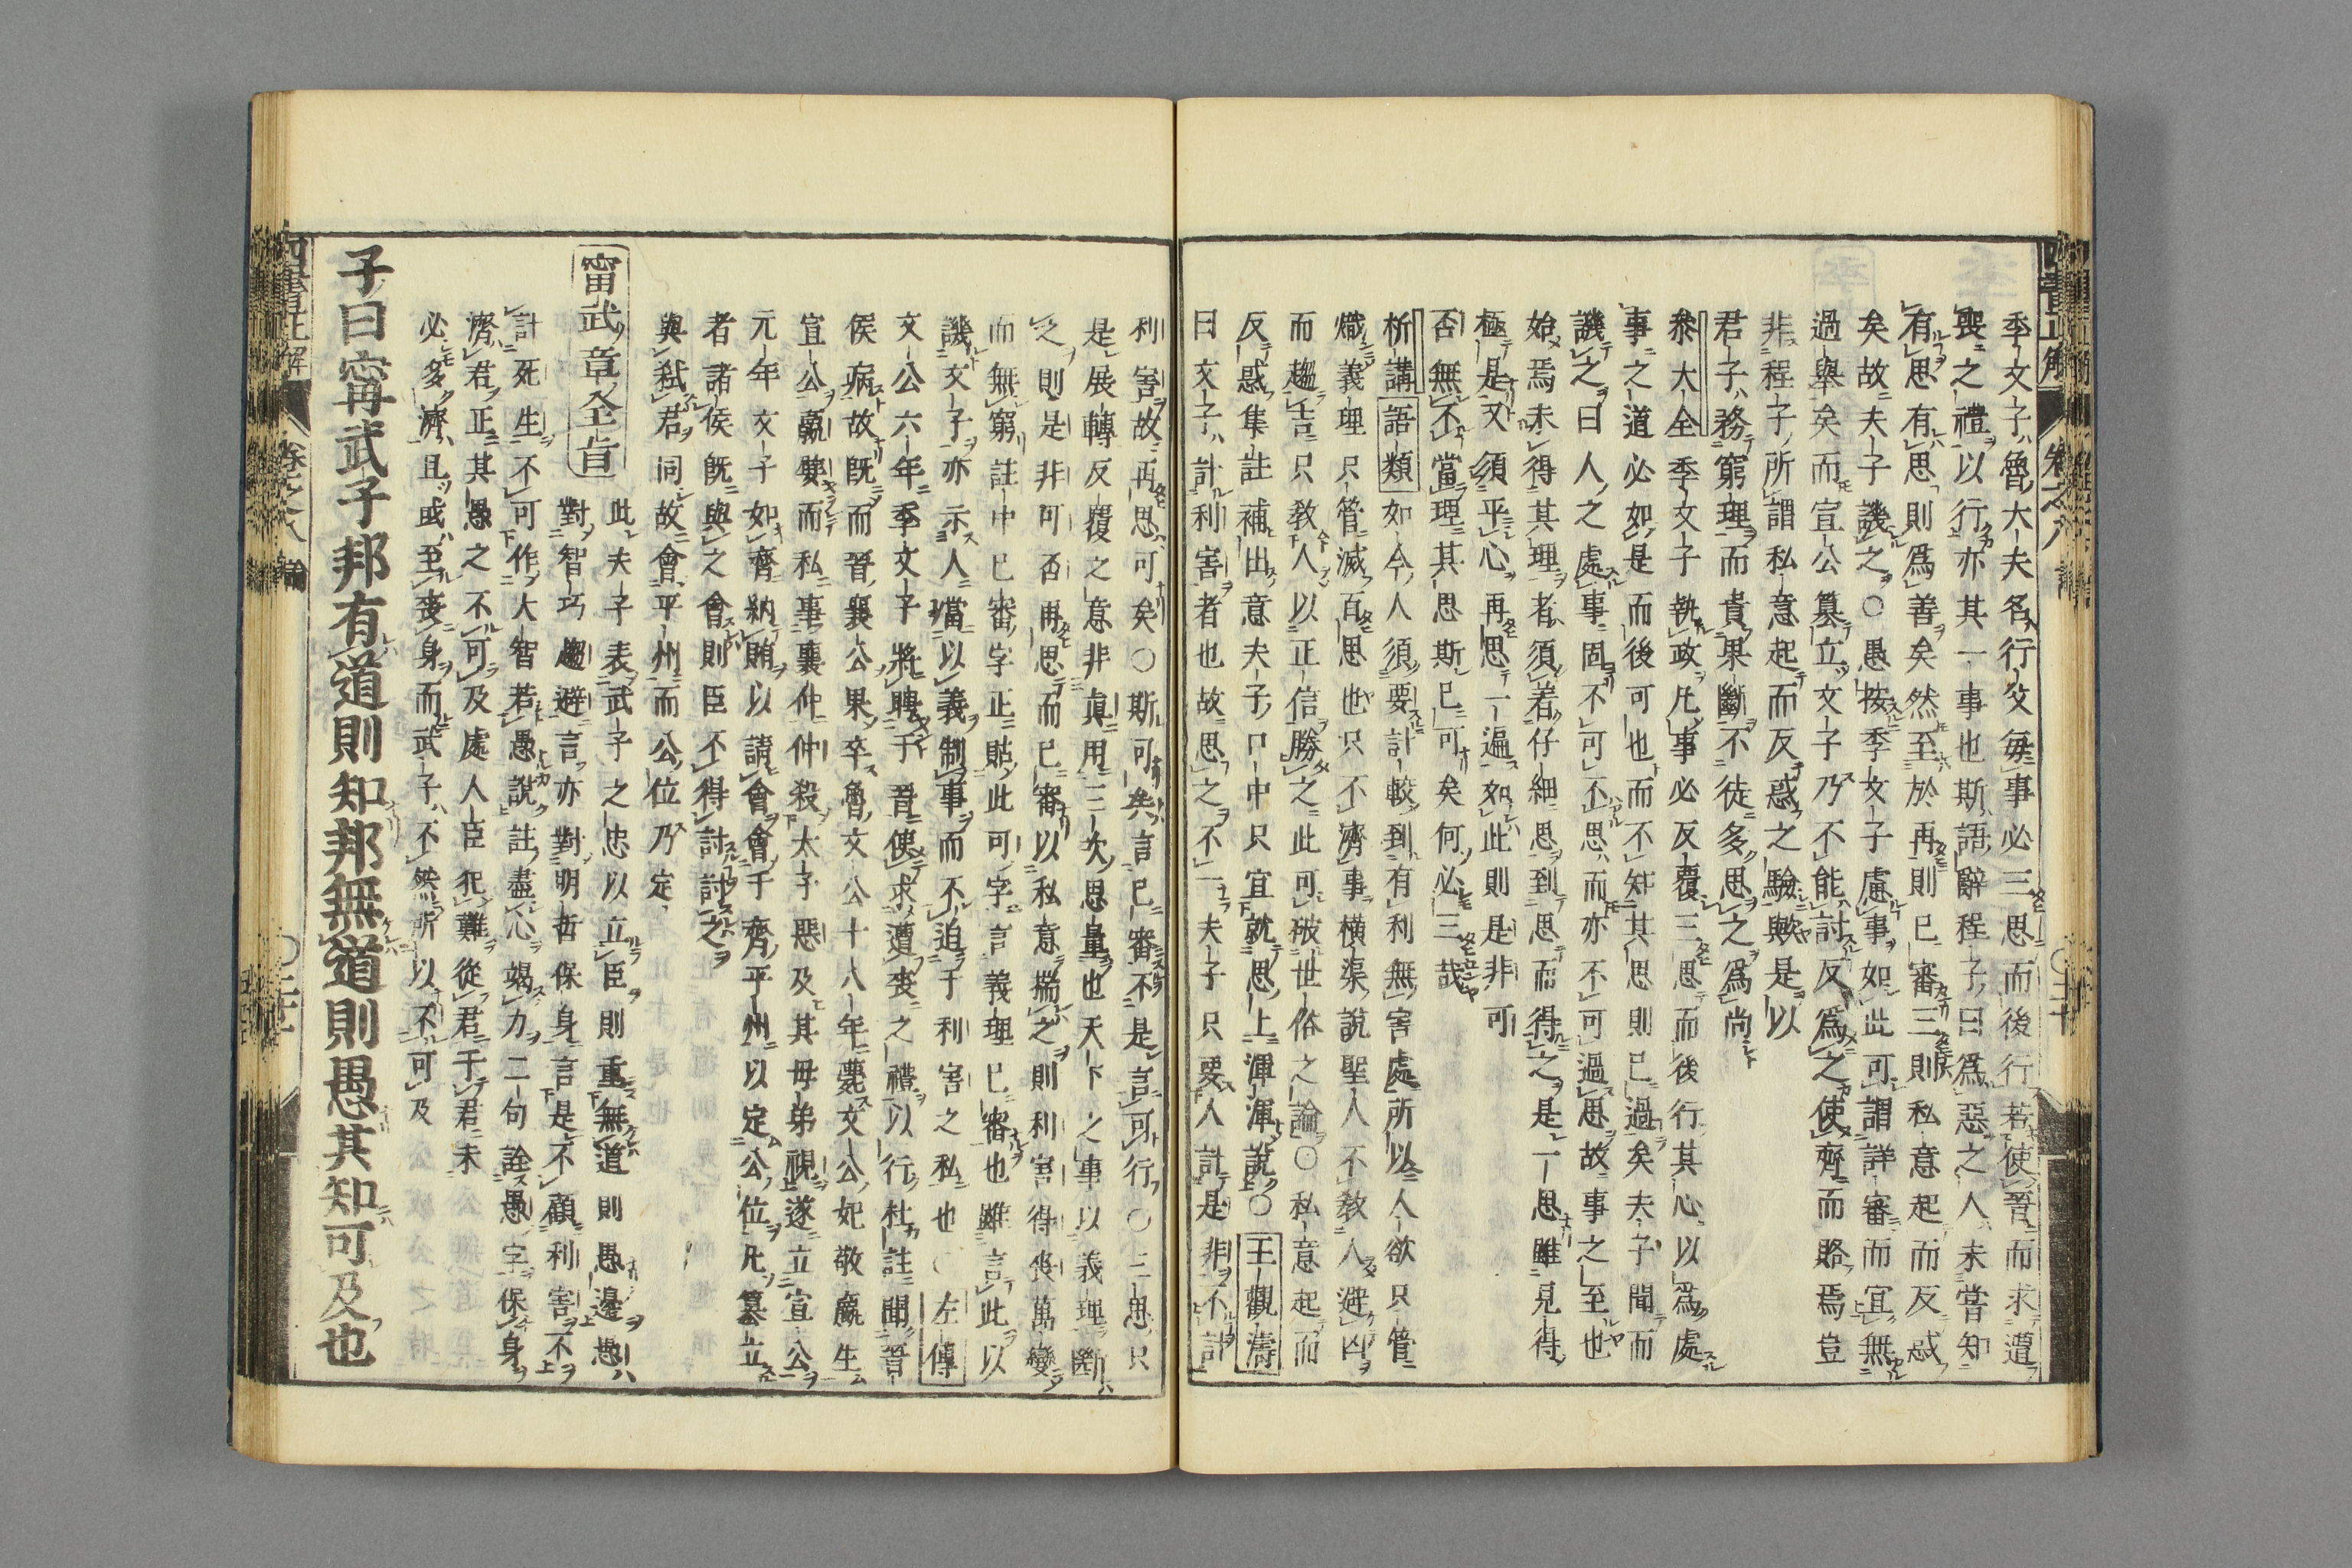 季文子魯大夫名行父每事必三思而後行若使晉而求遭
喪之禮以行亦其一事也斯語辭程子曰爲惡之人未嘗知
有思有思則爲善矣然至於再則已審三則私意起而反惑
矣故夫子譏之○愚按季文子慮事如此可謂詳審而宜無
過舉矣而宣公簒立文子乃不能討反爲之使齊而賂焉豈
非程子所謂私意起而反惑之驗歟是以
君子務窮理而貴果斷不徒多思之爲尚
叅大全季文子執政凡事必反覆三思而後行其心以爲處
事之道必如是而後可也而不知其思則已過矣夫子聞而
譏之曰人之處事固不可不思而亦不可過思故事之至也
始焉未得其理者須着仔細思到思而得之是一思雖見得
極是又須平心再思一遍如此則是非可
否無不當理其思斯已可矣何必三哉
析講語類如今人須要計較到有利無害處所以人欲只管
熾義理只管滅百思也只不濟事橫渠說聖人不敎人避凶
而趨吉只敎人以正信勝之此可破世俗之論○私意起而
反惑集註補出意夫子口中只宜就思上渾渾說○王觀濤
曰文子計利害者也故思之不一夫子只要人計是非不計
利害故再思可矣○斯可矣言已審不是言可行○三思只
是展轉反覆之意非眞用三次思量也天下之事以義理斷
之則是非可否再思而已審以私意揣之則利害得喪萬變
而無窮註中已審字正貼此可字言義理已審也雖言此以
譏文子亦示人當以義制事而不追于利害之私也○左傳
文公六年季文子將聘于晉使求遭喪之禮以行杜註聞晉
侯病故既而晉襄公果卒魯文公十八年薨文公妃敬嬴生
宣公嬴嬖而私事襄仲仲殺太子惡及其母弟視遂立宣公
元年文子如齊納賂以請會會于齊平州以定公位凡簒立
者諸侯既與之會則臣不得討討之
與弑君同故會平州而公位乃定
甯武章全旨
此夫子表武子之忠以立臣則重無道則愚邊愚
對智巧趨避言亦對明哲保身言是不顧利害不
計死生不可作大智若愚說註盡心竭力二句詮愚字保身
濟君正其愚之不可及處人臣犯難從君于君未
必多濟且或至喪身而武子不然所以不可及
子曰甯武子邦有道則知邦無道則愚其知可及也